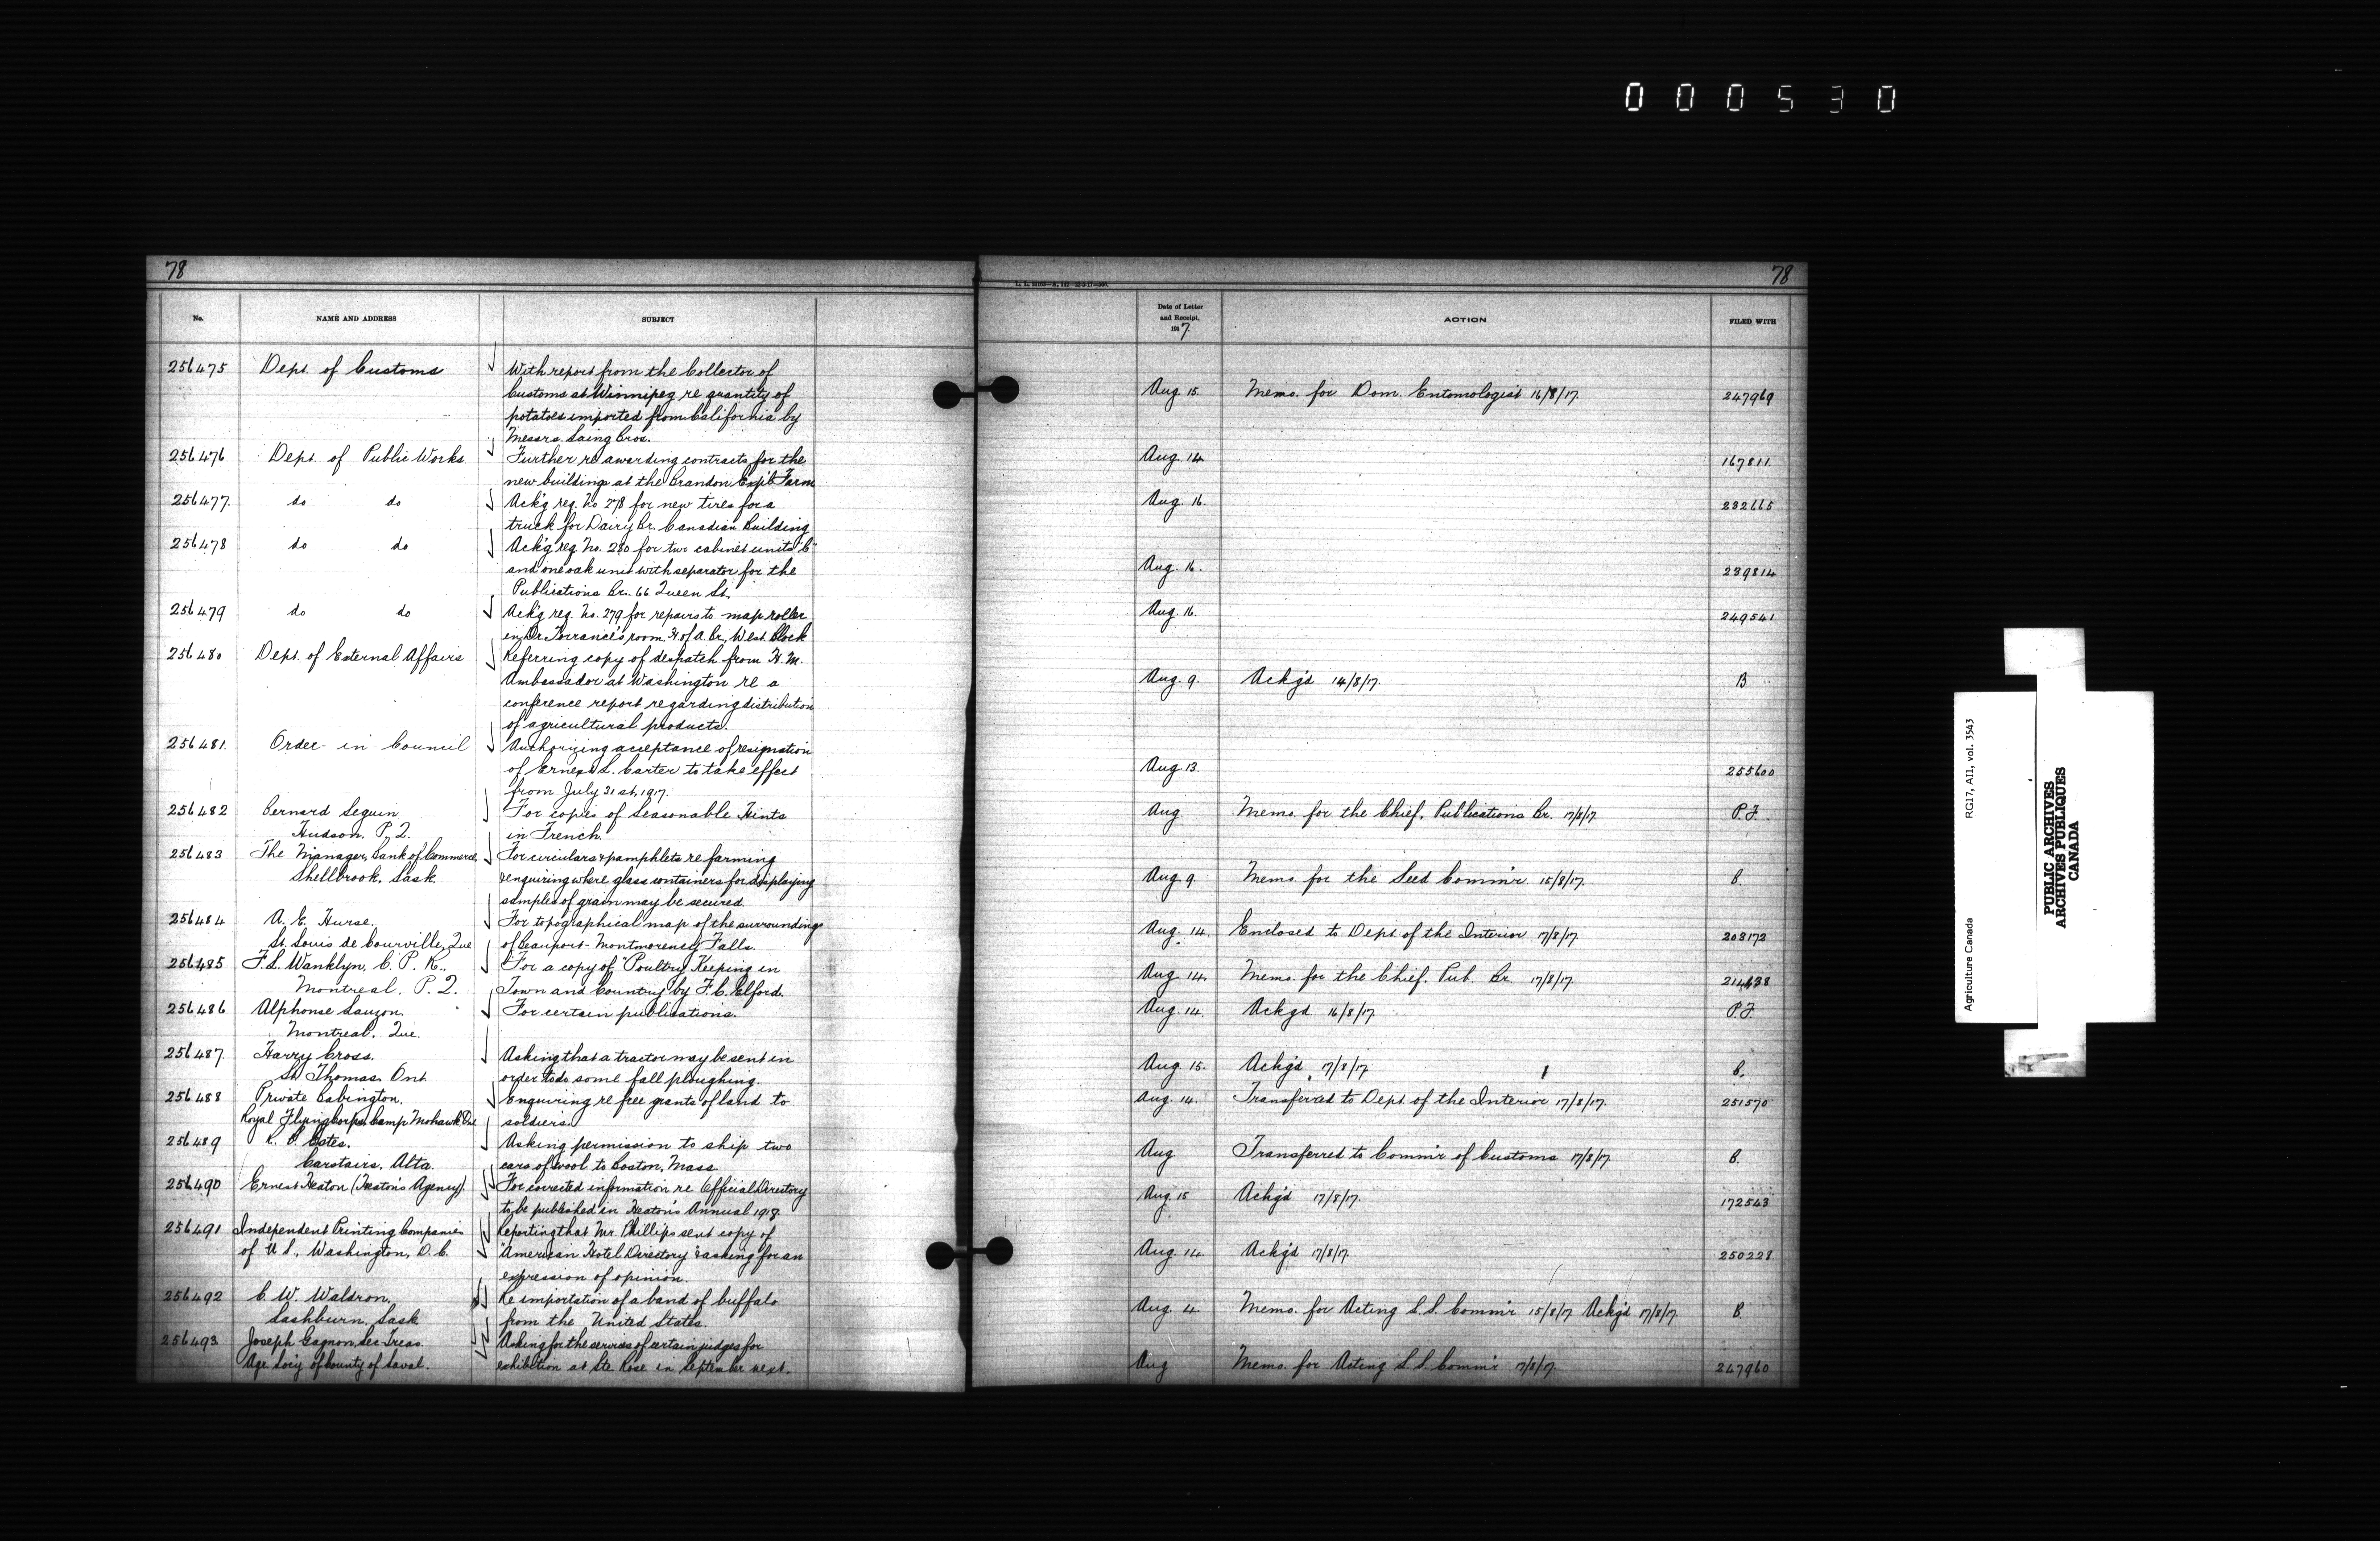 000530
78
No.
NAME AND ADDRESS
SUBJECT
256475
Dept. of Customs
With report from the Collector of
Customs at Winnipeg re quantity of
potatoes imported from California by
Messrs. Laing Bros.
256476
Dept. of Public Works
Further re awarding contracts for the
new buildings at the Brandon Exp'l Farm
256477.
do do
Ack'g req. No 278 for new tires for a
truck for Dairy Br. Canadian Building
256478
do do
Ack'g req. No. 280 for two cabinet units "C"
and one oak unit with separator for the
Publications Br. 66 Queen St.
256479
do do
Ack'g req. No. 279 for repairs to map roller
in Dr. Torrance's room, H. of A. Br., West Block
256480
Dept. of External Affairs
Referring copy of despatch from H. M.
Ambassador at Washington re a
conference report regarding distribution
of agricultural products.
256481.
Order-in-Council
Authorizing acceptance of resignation
of Ernest L. Carter to take effect
from July 31st, 1917.
256482
Bernard Seguin
Hudson. P. Q.
For copies of Seasonable Hints
in French.
256483
The Manager, Bank of Commerce,
Shellbrook, Sask.
For circulars & pamphlets re farming
& enquiring where glass containers for displaying
samples of grain may be secured.
256484
A. E. Hurse.
St. Louis de Courville, Que
For topographical map of the surroundings
of Beauport-Montmorency Falls.
256485
F. L. Wanklyn, C. P. R.,
Montreal. P. Q.
For a copy of "Poultry Keeping in
Town and Country by F. C. Elford.
256486
Alphonse Lauzon.
Montreal. Que.
For certain publications.
256487.
Harry Cross.
St. Thomas. Ont.
Asking that a tractor may be sent in
order to do some fall ploughing.
256488
Private Babington.
Royal Flying Corps. Camp Mohawk Ont
Enquiring re free grants of land to
soldiers.
256489
Cates.
Carstairs, Alta.
Asking permission to ship two
cars of wool to Boston, Mass.
256490
Ernest Heaton (Heaton's Agency).
For corrected information re Official Directory
to be published in Heaton's Annual 1918.
256491
Independent Printing Companies
of U. S., Washington, D. C.
Reporting that Mr. Phillips sent copy of
"American Hotel Directory" & asking for an
expression of opinion.
256492
C. W. Waldron,
Lashburn, Sask
Re importation of a band of buffalo
from the United States.
256493
Joseph Gagnon, Sec Treas.
Agr. Soc'y of County of Laval.
Asking for the services of certain judges for
exhibition at Ste Rose in September next.
78
Date of Letter
and Receipt,
1917.
ACTION
FILED WITH
Aug. 15. Memo. for Dom. Entomologist 16/8/17. 247969
Aug. 14 167811.
Aug. 16. 232665
Aug. 16. 239814
Aug. 16. 249541
Aug. 9. Ackg'd 14/8/17. B
Aug. 13. 255600
Aug. Memo. for the Chief, Publications Br. 17/8/17 P.F.
Aug. 9 Memo. for the Seed Comm'r. 15/8/17. B.
Aug. 14. Enclosed to Dept. of the Interior 17/8/17 203172
Aug. 14. Memo. for the Chief. Pub. Br. 17/8/17. 214438
Aug. 14. Ackg'd 16/8/17. P.F.
Aug. 15. Ackg'd 17/8/17 B.
Aug. 14. Transferred to Dept. of the Interior 17/8/17. 251570
Aug. Transferred to Comm'r of Customs 17/8/17 B.
Aug. 15 Ackg'd 17/8/17. 172543
Aug. 14. Ackg'd 17/8/17. 250228
Aug. 4. Memo. for Acting L.S. Comm'r 15/8/17. Ackg'd 17/8/17. B
Aug Memo. for Acting L.S. Comm'r 17/8/17. 247960
Agriculture Canada RG17, AI1, vol. 3543
PUBLIC ARCHIVES
ARCHIVES PUBLIQUES
CANADA